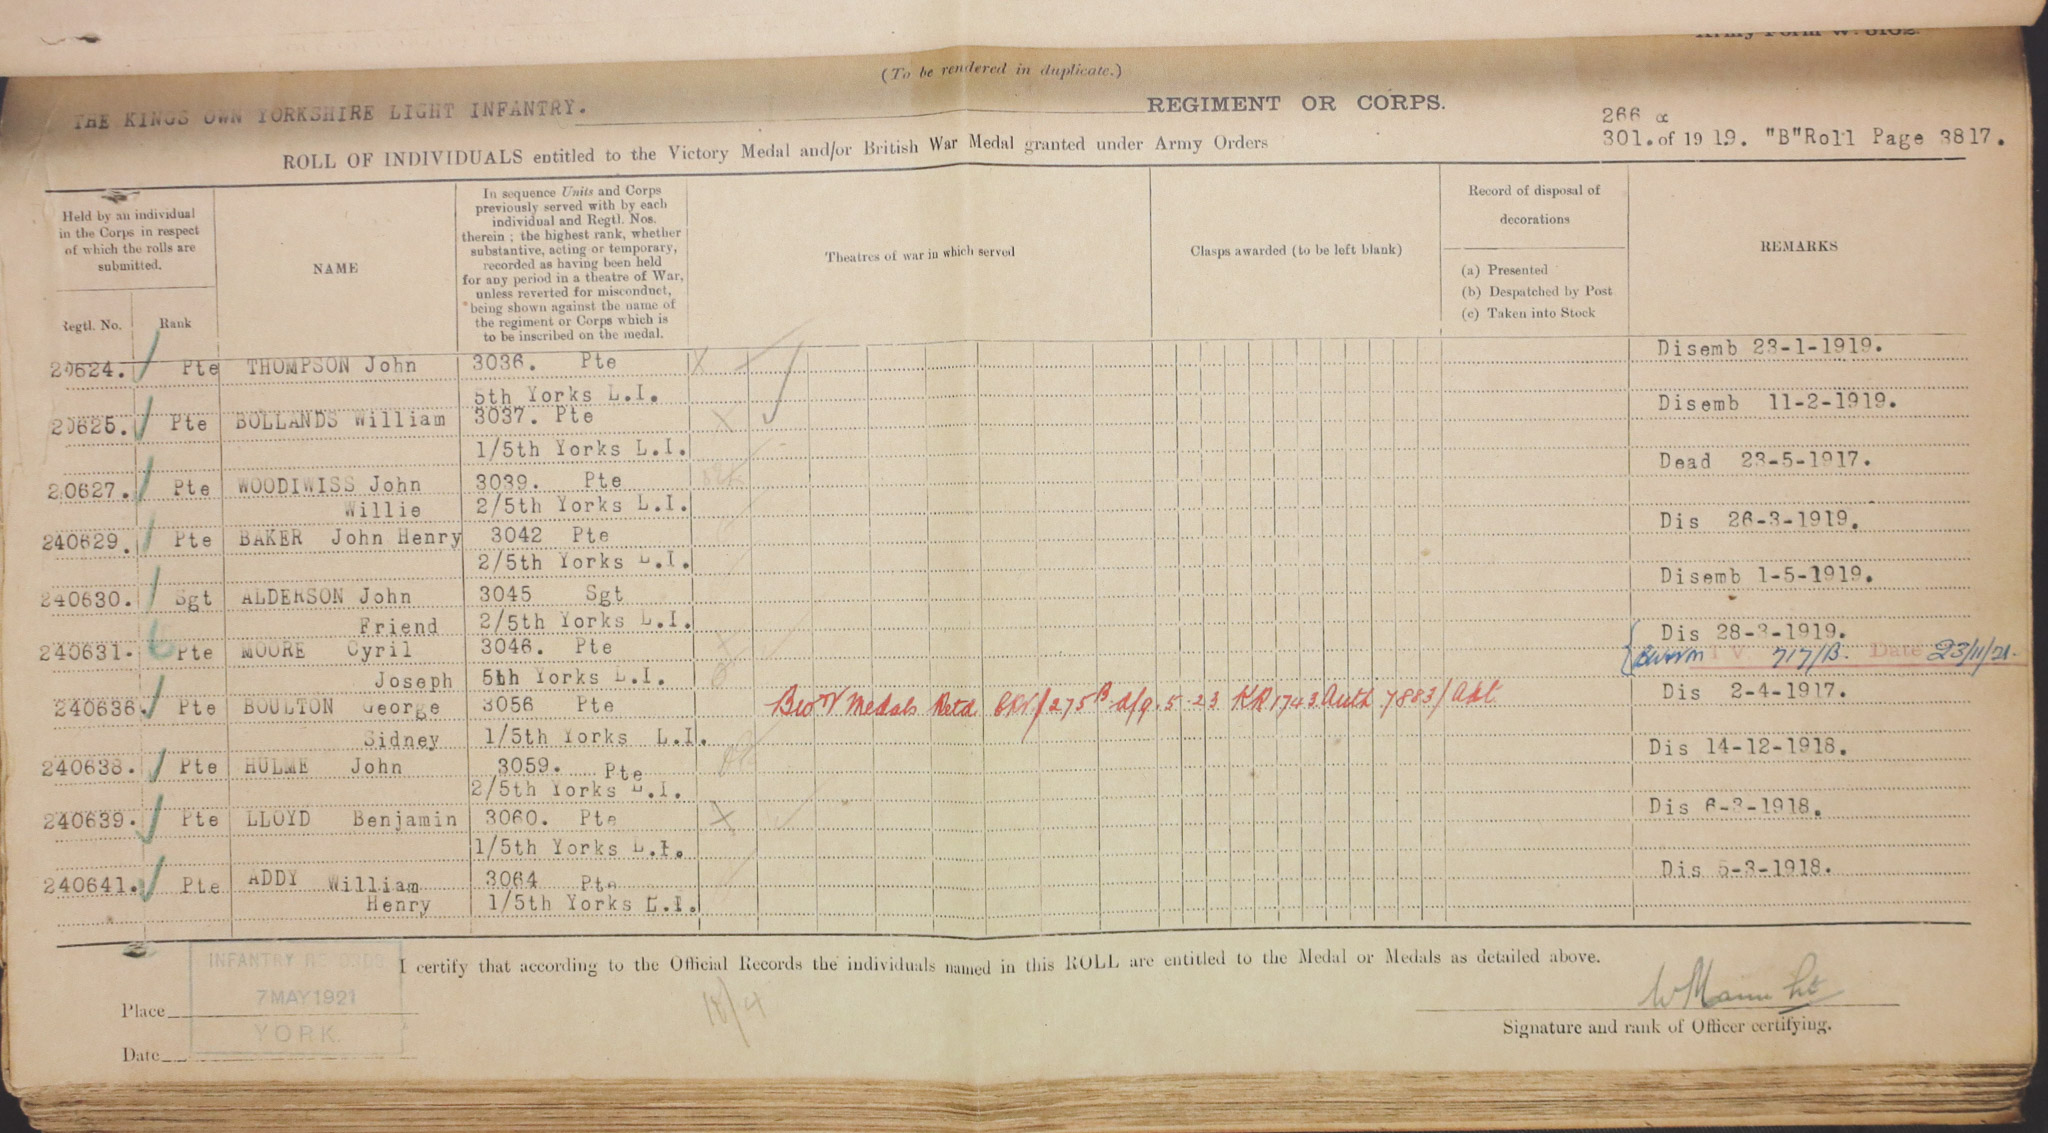 (To be rendered in duplicate.)
THE KINGS OWN YORKSHIRE LIGHT INFANTRY. REGIMENT OR CORPS.
266 &
ROLL OF INDIVIDUALS entitled to the Victory Medal and/or British War Medal granted under Army Orders 301. of 1919. "B"Roll Page 3817.
Held by an individual
in the Corps in respect
of which the rolls are
submitted.
Regtl. No. Rank
NAME
In sequence Units and Corps
previously served with by each
individual and Regtl. Nos.
therein ; the highest rank, whether
substantive, acting or temporary,
recorded as having been held
for any period in a theatre of War,
unless reverted for misconduct,
being shown against the name of
the regiment or Corps which is
to be inscribed on the medal.
Theatres of war in which served
Clasps awarded (to be left blank)
Record of disposal of
decorations
(a) Presented
(b) Despatched by Post
(c) Taken into Stock
REMARKS
20624. Pte THOMPSON John 3036. Pte Disemb 23-1-1919.
5th Yorks L.I.
20625. Pte BOLLANDS William 3037. Pte Disemb 11-2-1919.
1/5th Yorks L.I.
20627. Pte WOODIWISS John 3039. Pte Dead 23-5-1917.
Willie 2/5th Yorks L.I.
240629. Pte BAKER John Henry 3042 Pte Dis 26-3-1919.
2/5th Yorks L.I.
240630. Sgt ALDERSON John 3045 Sgt Disemb 1-5-1919.
Friend 2/5th Yorks L.I.
240631. Pte MOORE Cyril 3046. Pte Dis 28-3-1919.
717/B. Date 23/11/21.
Joseph 5th Yorks L.I.
240636. Pte BOULTON George 3056 Pte Medals Retd 275 B 5-23 KR 1743 Auth 7883/ Dis 2-4-1917.
Sidney 1/5th Yorks L.I.
240638. Pte HULME John 3059. Pte Dis 14-12-1918.
2/5th Yorks L.I.
240639. Pte LLOYD Benjamin 3060. Pte Dis 6-3-1918.
1/5th Yorks L.I.
240641. Pte ADDY William 3064 Pte Dis 5-3-1918.
Henry 1/5th Yorks L.I.
I certify that according to the Official Records the individuals named in this ROLL are entitled to the Medal or Medals as detailed above.
INFANTRY
7 MAY 1921
YORK.
Place
Date
18/4
Signature and rank of Officer certifying.